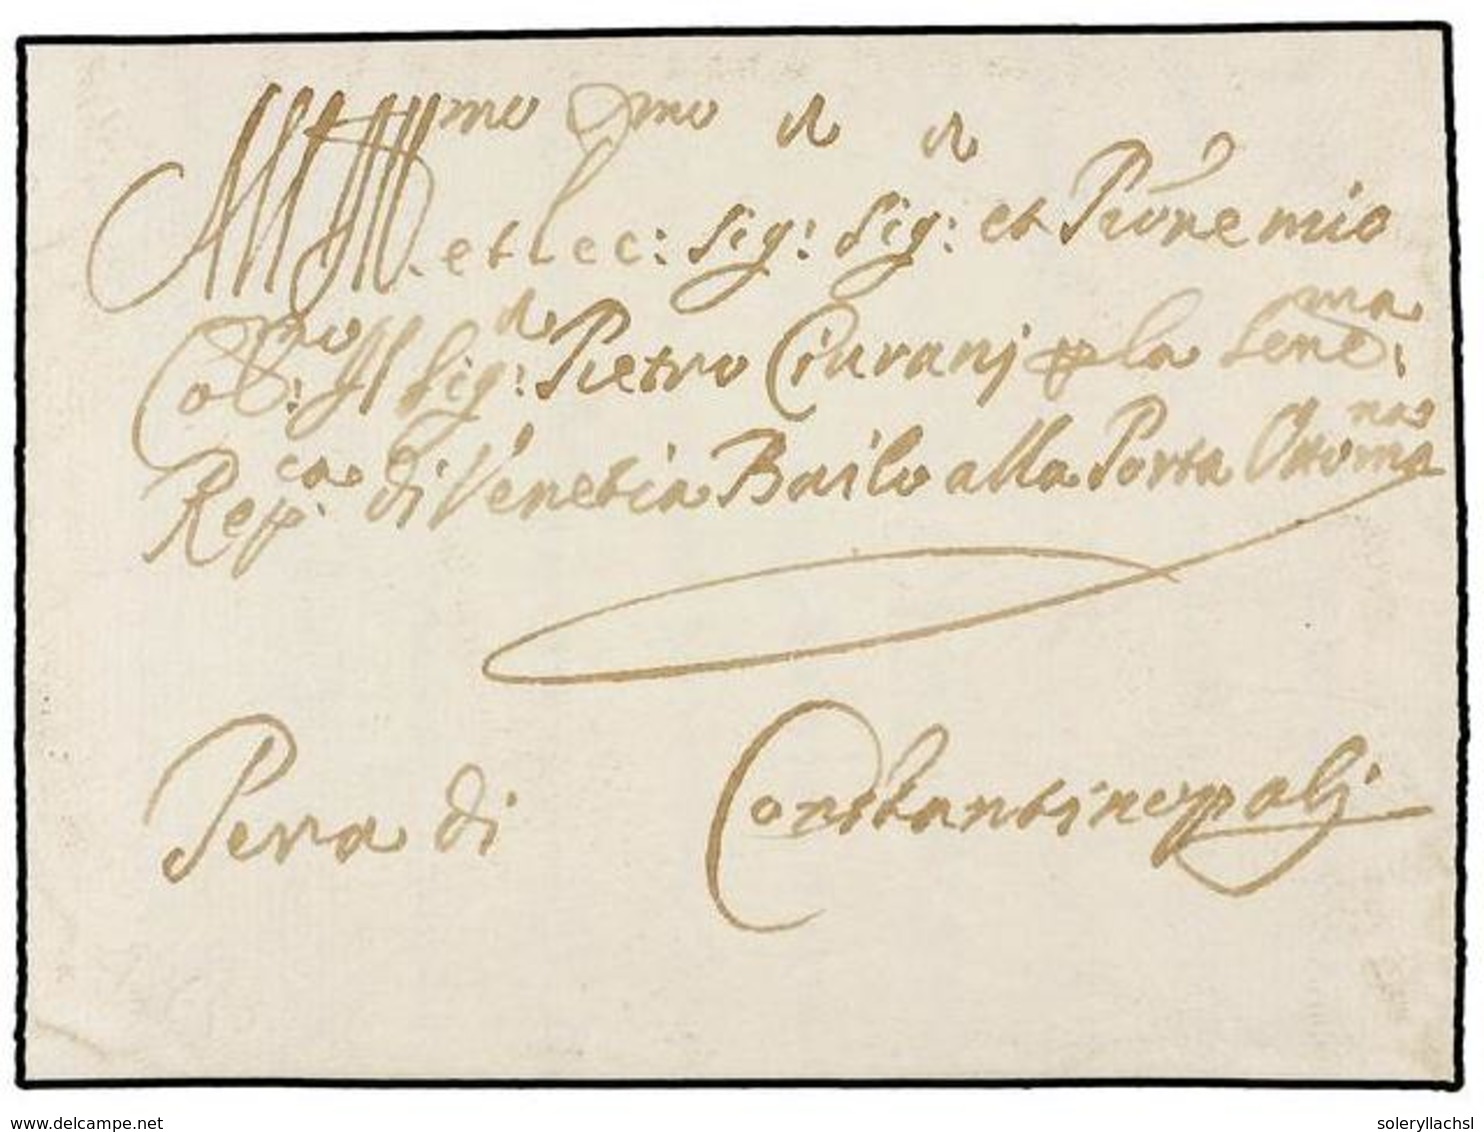 Ill.mo et Ecc.mo Sig.r Sig.r et Prone mio
Col.mo Il Sig.r Pietro Ciurani p la Seren.ma
Rep.ca di Venetia Bailo alla Porta Ottomna
Pera di Constantinopoli
delcampe.net
soleryllachsl